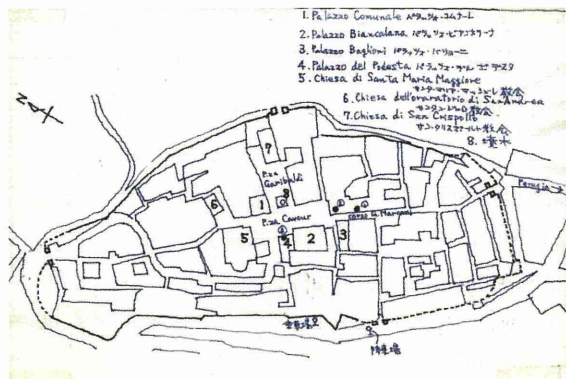 1. Palazzo Comunale パラッツォ・コムナーレ
2. Palazzo Biancalana パラッツォ・ビアンカラーナ
3. Palazzo Baglioni パラッツォ・バリョーニ
4. Palazzo del Podesta パラッツォ・デル・ポデスタ
5. Chiesa di Santa Maria Maggiore
サンタ・マリア・マッジョーレ教会
6. Chiesa dell'oraratorio di San Andrea
教会
7. Chiesa di San Crispolto
サン・クリスポルト教会
8. 噴水
7
P.za
Garibaldi
6
1
8
P.za Cavour
corso G. Marconi
5
4
2
3
Perugia →
駐車場